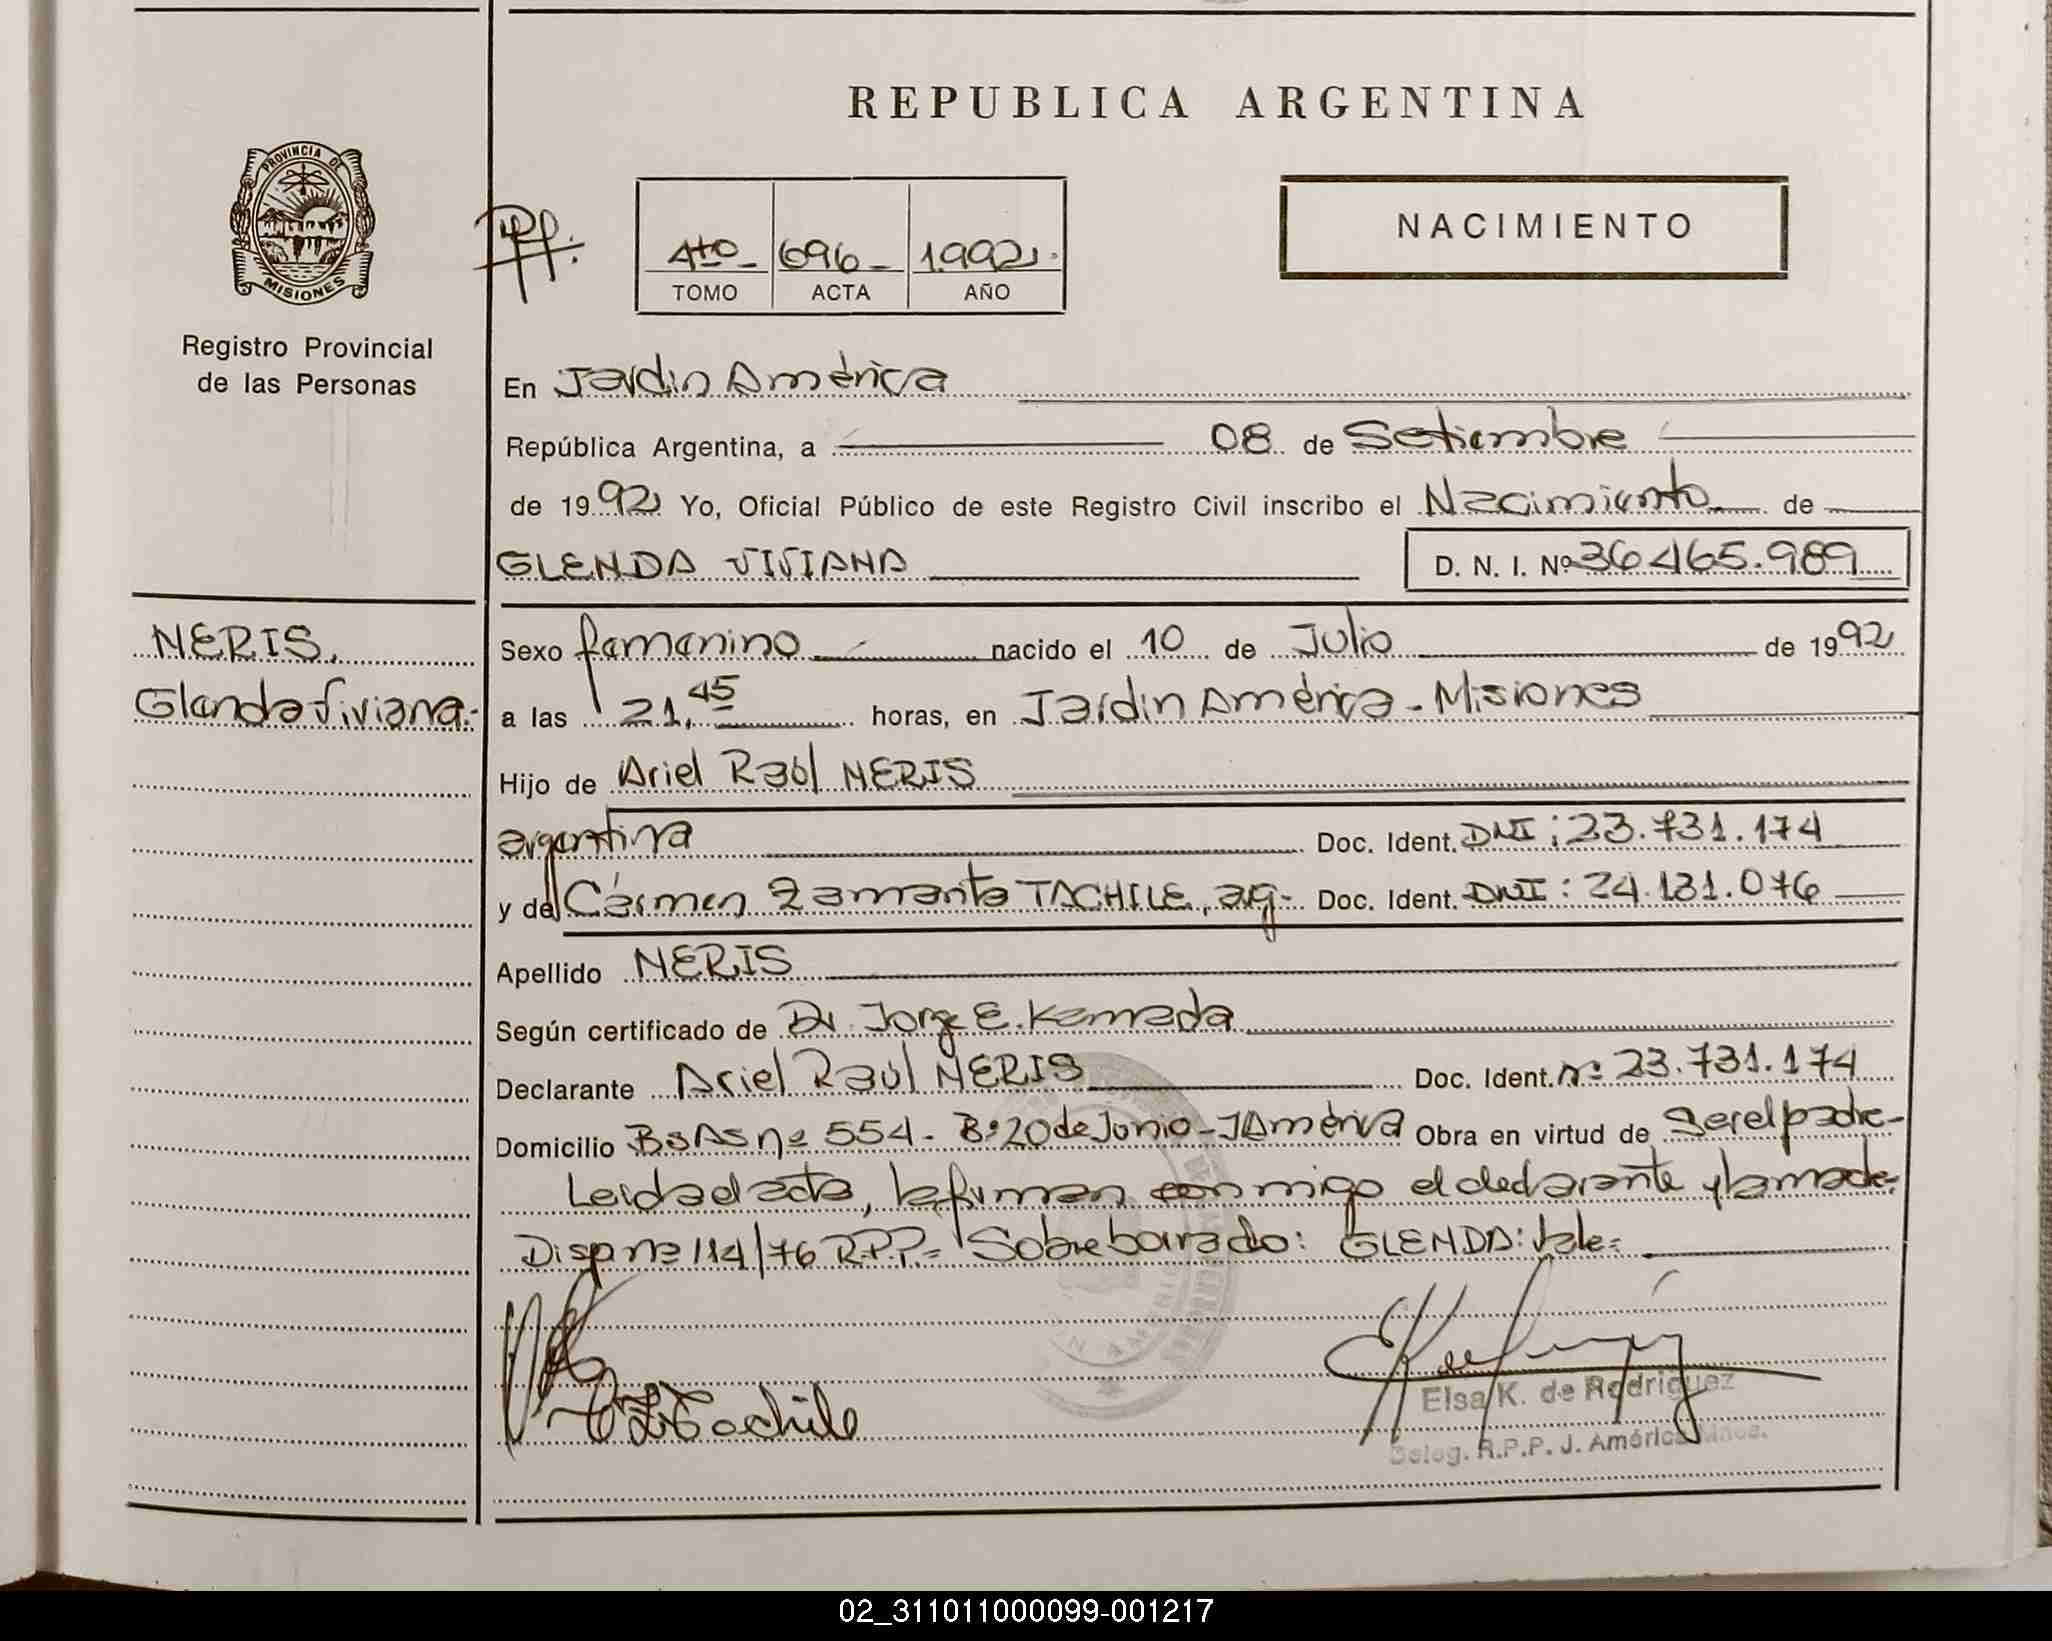 REPUBLICA ARGENTINA
PROVINCIA DE
MISIONES
Registro Provincial
de las Personas
4to 696 1.992.
TOMO ACTA AÑO
NACIMIENTO
En Jardin América
República Argentina, a 08 de Setiembre
de 1992 Yo, Oficial Público de este Registro Civil inscribo el Nacimiento de
GLENDA VIVIANA D. N. I. Nº 36465.989
NERIS,
Glenda Viviana.-
Sexo femenino nacido el 10 de Julio de 1992
a las 21,45 horas, en Jardin América - Misiones
Hijo de Ariel Raúl NERIS
argentina Doc. Ident. DNI: 23.731.174
y de Cármen Zamanta TACHILE, ag- Doc. Ident. DNI: 24.131.076
Apellido NERIS
Según certificado de Dr. Jorge E. Kamada
Declarante Ariel Raúl NERIS Doc. Ident. nº 23.731.174
Domicilio Bs As nº 554- Bº 20 de Junio - J América Obra en virtud de Ser el padre-
Leida el acta, la firman conmigo el declarante y la madre.
Disp nº 114/76 R.P.P.= Sobreborrado: GLENDA: Vale=
Tachile
Elsa K. de Rodriguez
Deleg. R.P.P. J. América Mnes.
02_311011000099-001217